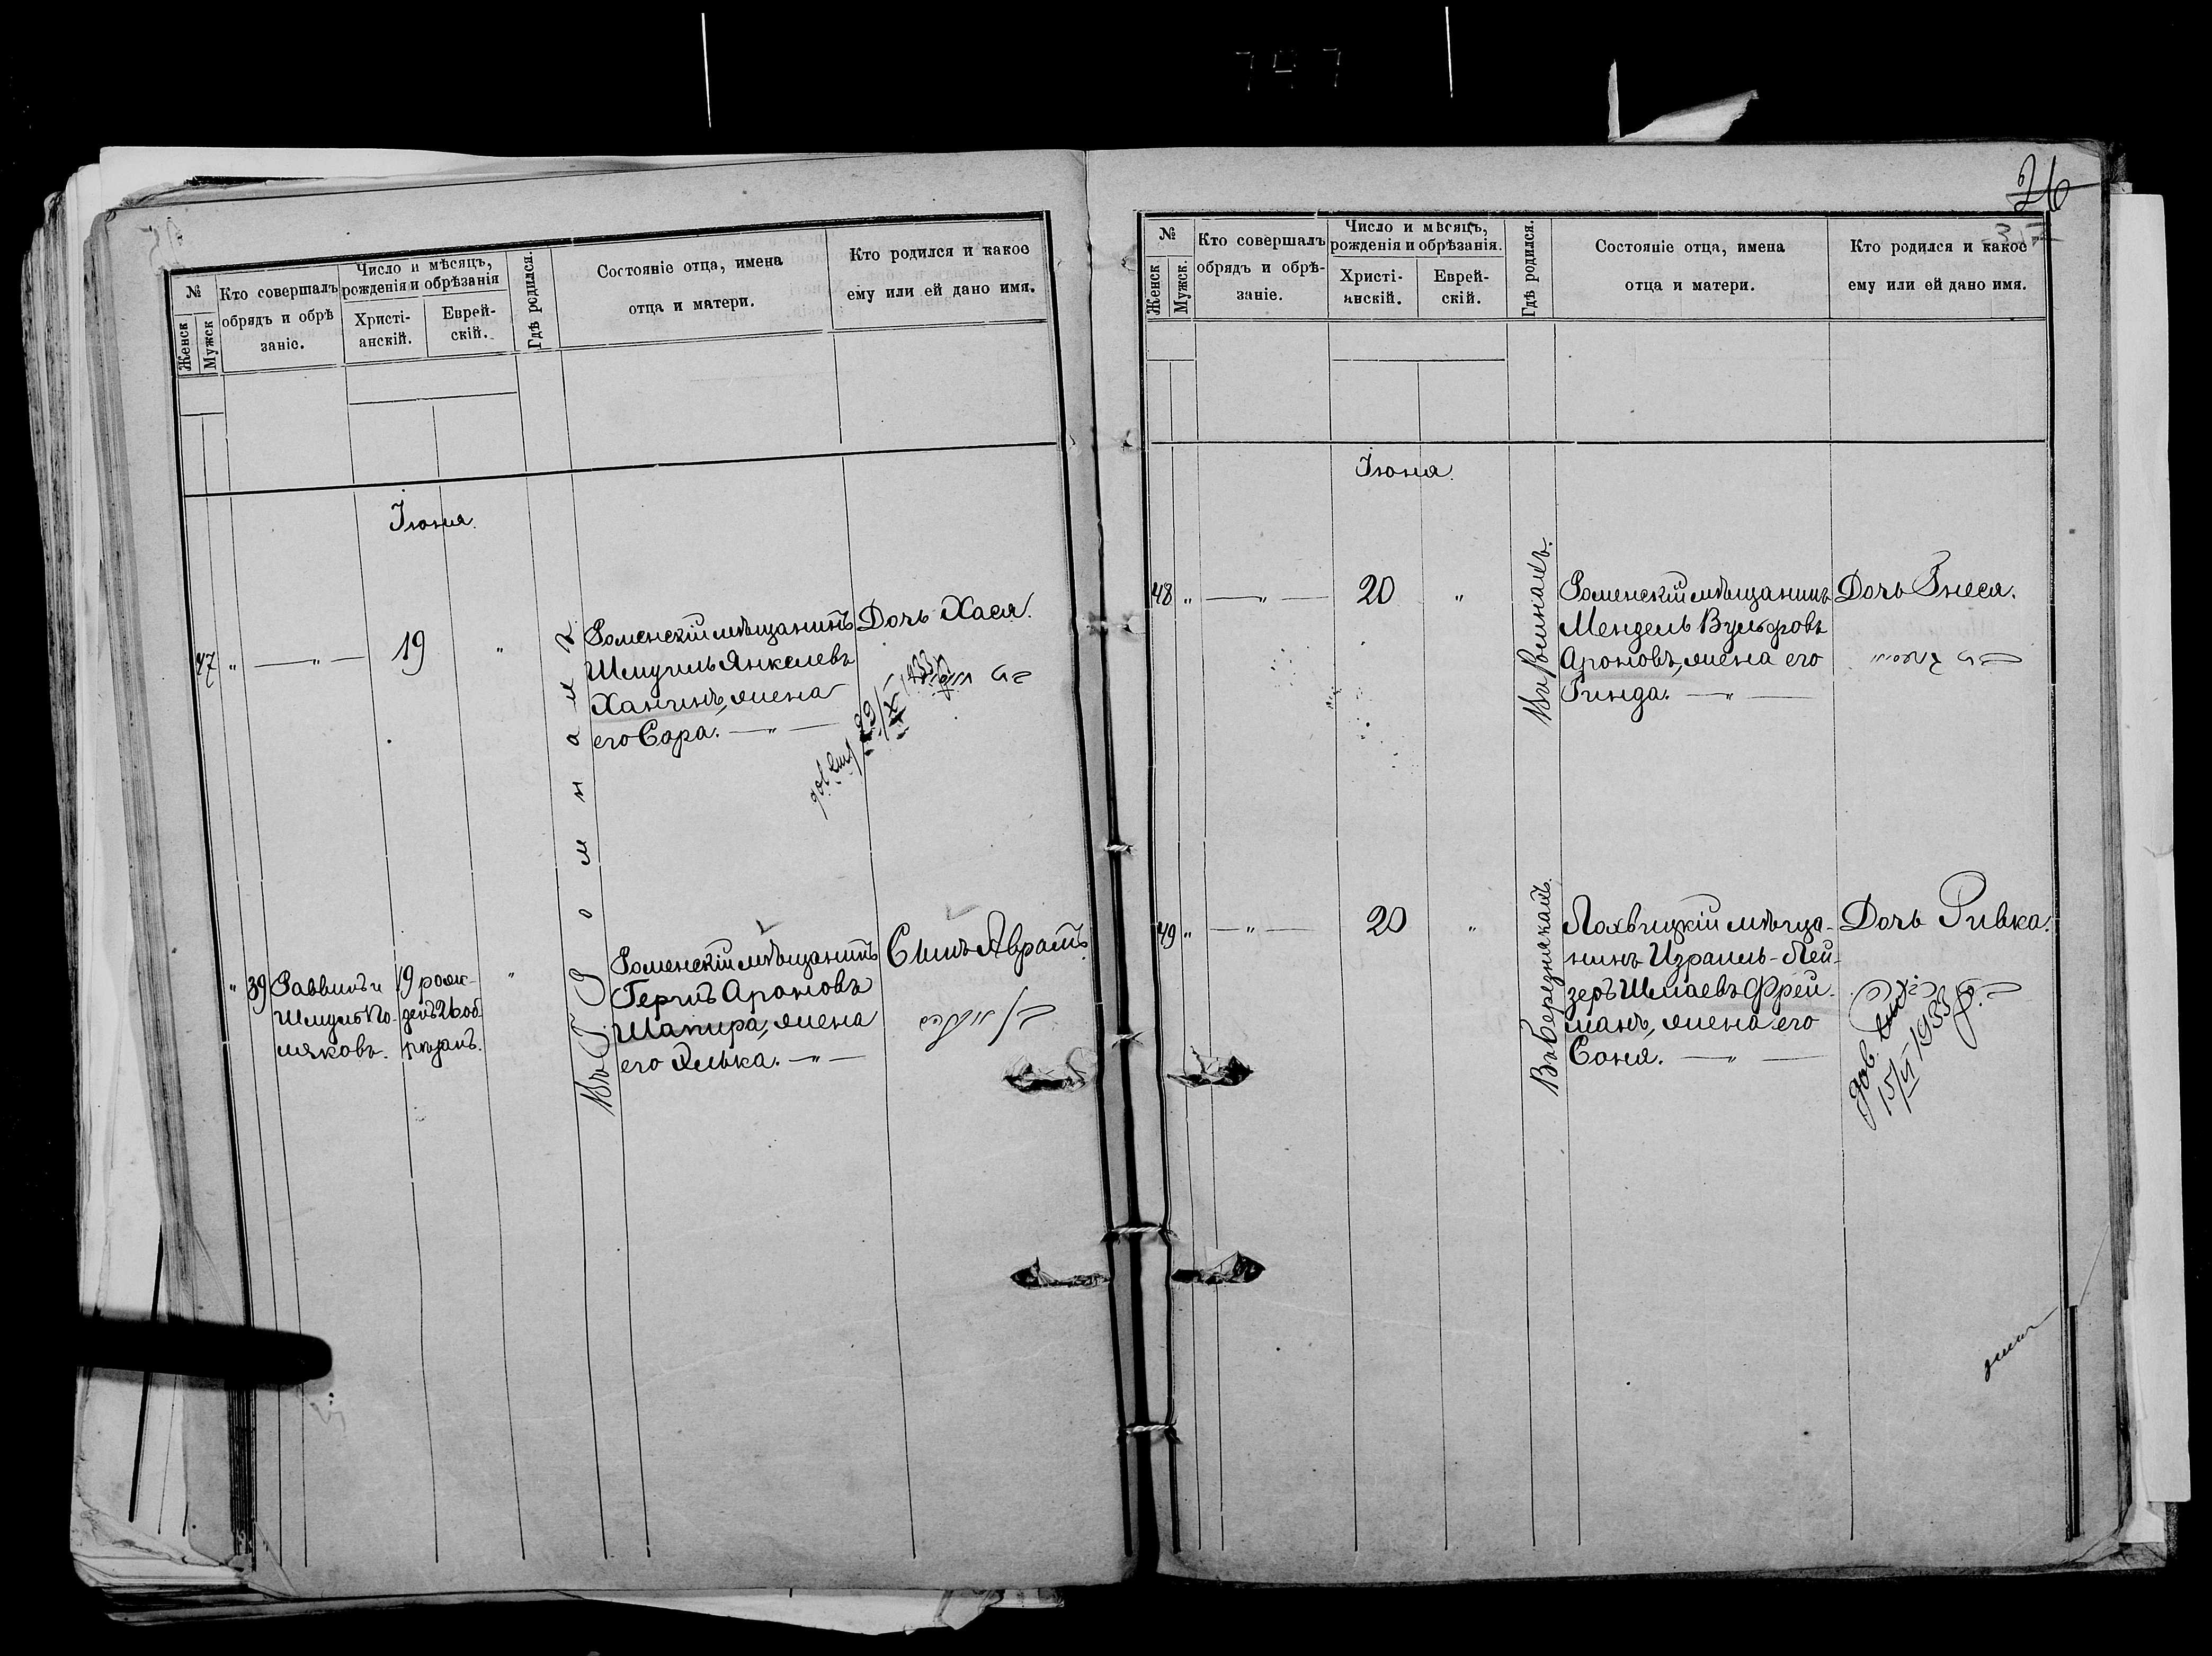 747
№
Женск
Мужск
Кто совершалъ
обрядъ и обрѣ
заніе.
Число и мѣсяцъ,
рожденія и обрѣзанія
Христі-
анскій.
Еврей-
скій.
Гдѣ родился.
Состояніе отца, имена
отца и матери.
Кто родился и какое
ему или ей дано имя.
Іюня.
47 " — " — 19 "
Роменскій мѣщанинъ
Шмуиль Янкелевъ
Ханинъ, жена
его Сара. — " —
Дочь Хася.
29/X 1933
" 39
Раввинъ и
Шмуль По-
ляковъ.
19 рож-
денъ 26 об-
рѣзанъ.
"
Въ Г. Роменахъ
Роменскій мѣщанинъ
Герцъ Ароновъ
Шапира, жена
его Элька. — " —
Сынъ Аврамъ.
26
37
№
Женск
Мужск.
Кто совершалъ
обрядъ и обрѣ-
заніе.
Число и мѣсяцъ,
рожденія и обрѣзанія.
Христі-
анскій.
Еврей-
скій.
Гдѣ родился.
Состояніе отца, имена
отца и матери.
Кто родился и какое
ему или ей дано имя.
Іюня.
48 " — " — 20 "
Въ Роменахъ.
Роменскій мѣщанинъ
Мендель Вульфовъ
Ароновъ, жена его
Гинда. — " —
Дочь Гнеся.
49 " — " — 20 "
Въ Березнякахъ.
Лохвицкій мѣща-
нинъ Израиль-Лей-
зеръ Шмаевъ Фрей-
манъ, жена его
Соня. — " —
Дочь Ривка.
15/VI 1933